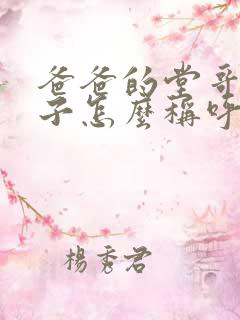 爸爸的堂哥
子怎麼稱呼
楊秀君